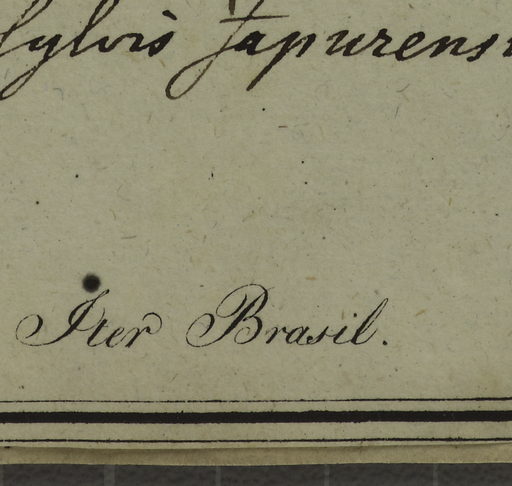 Sylvis Japurens
Iter Brasil.